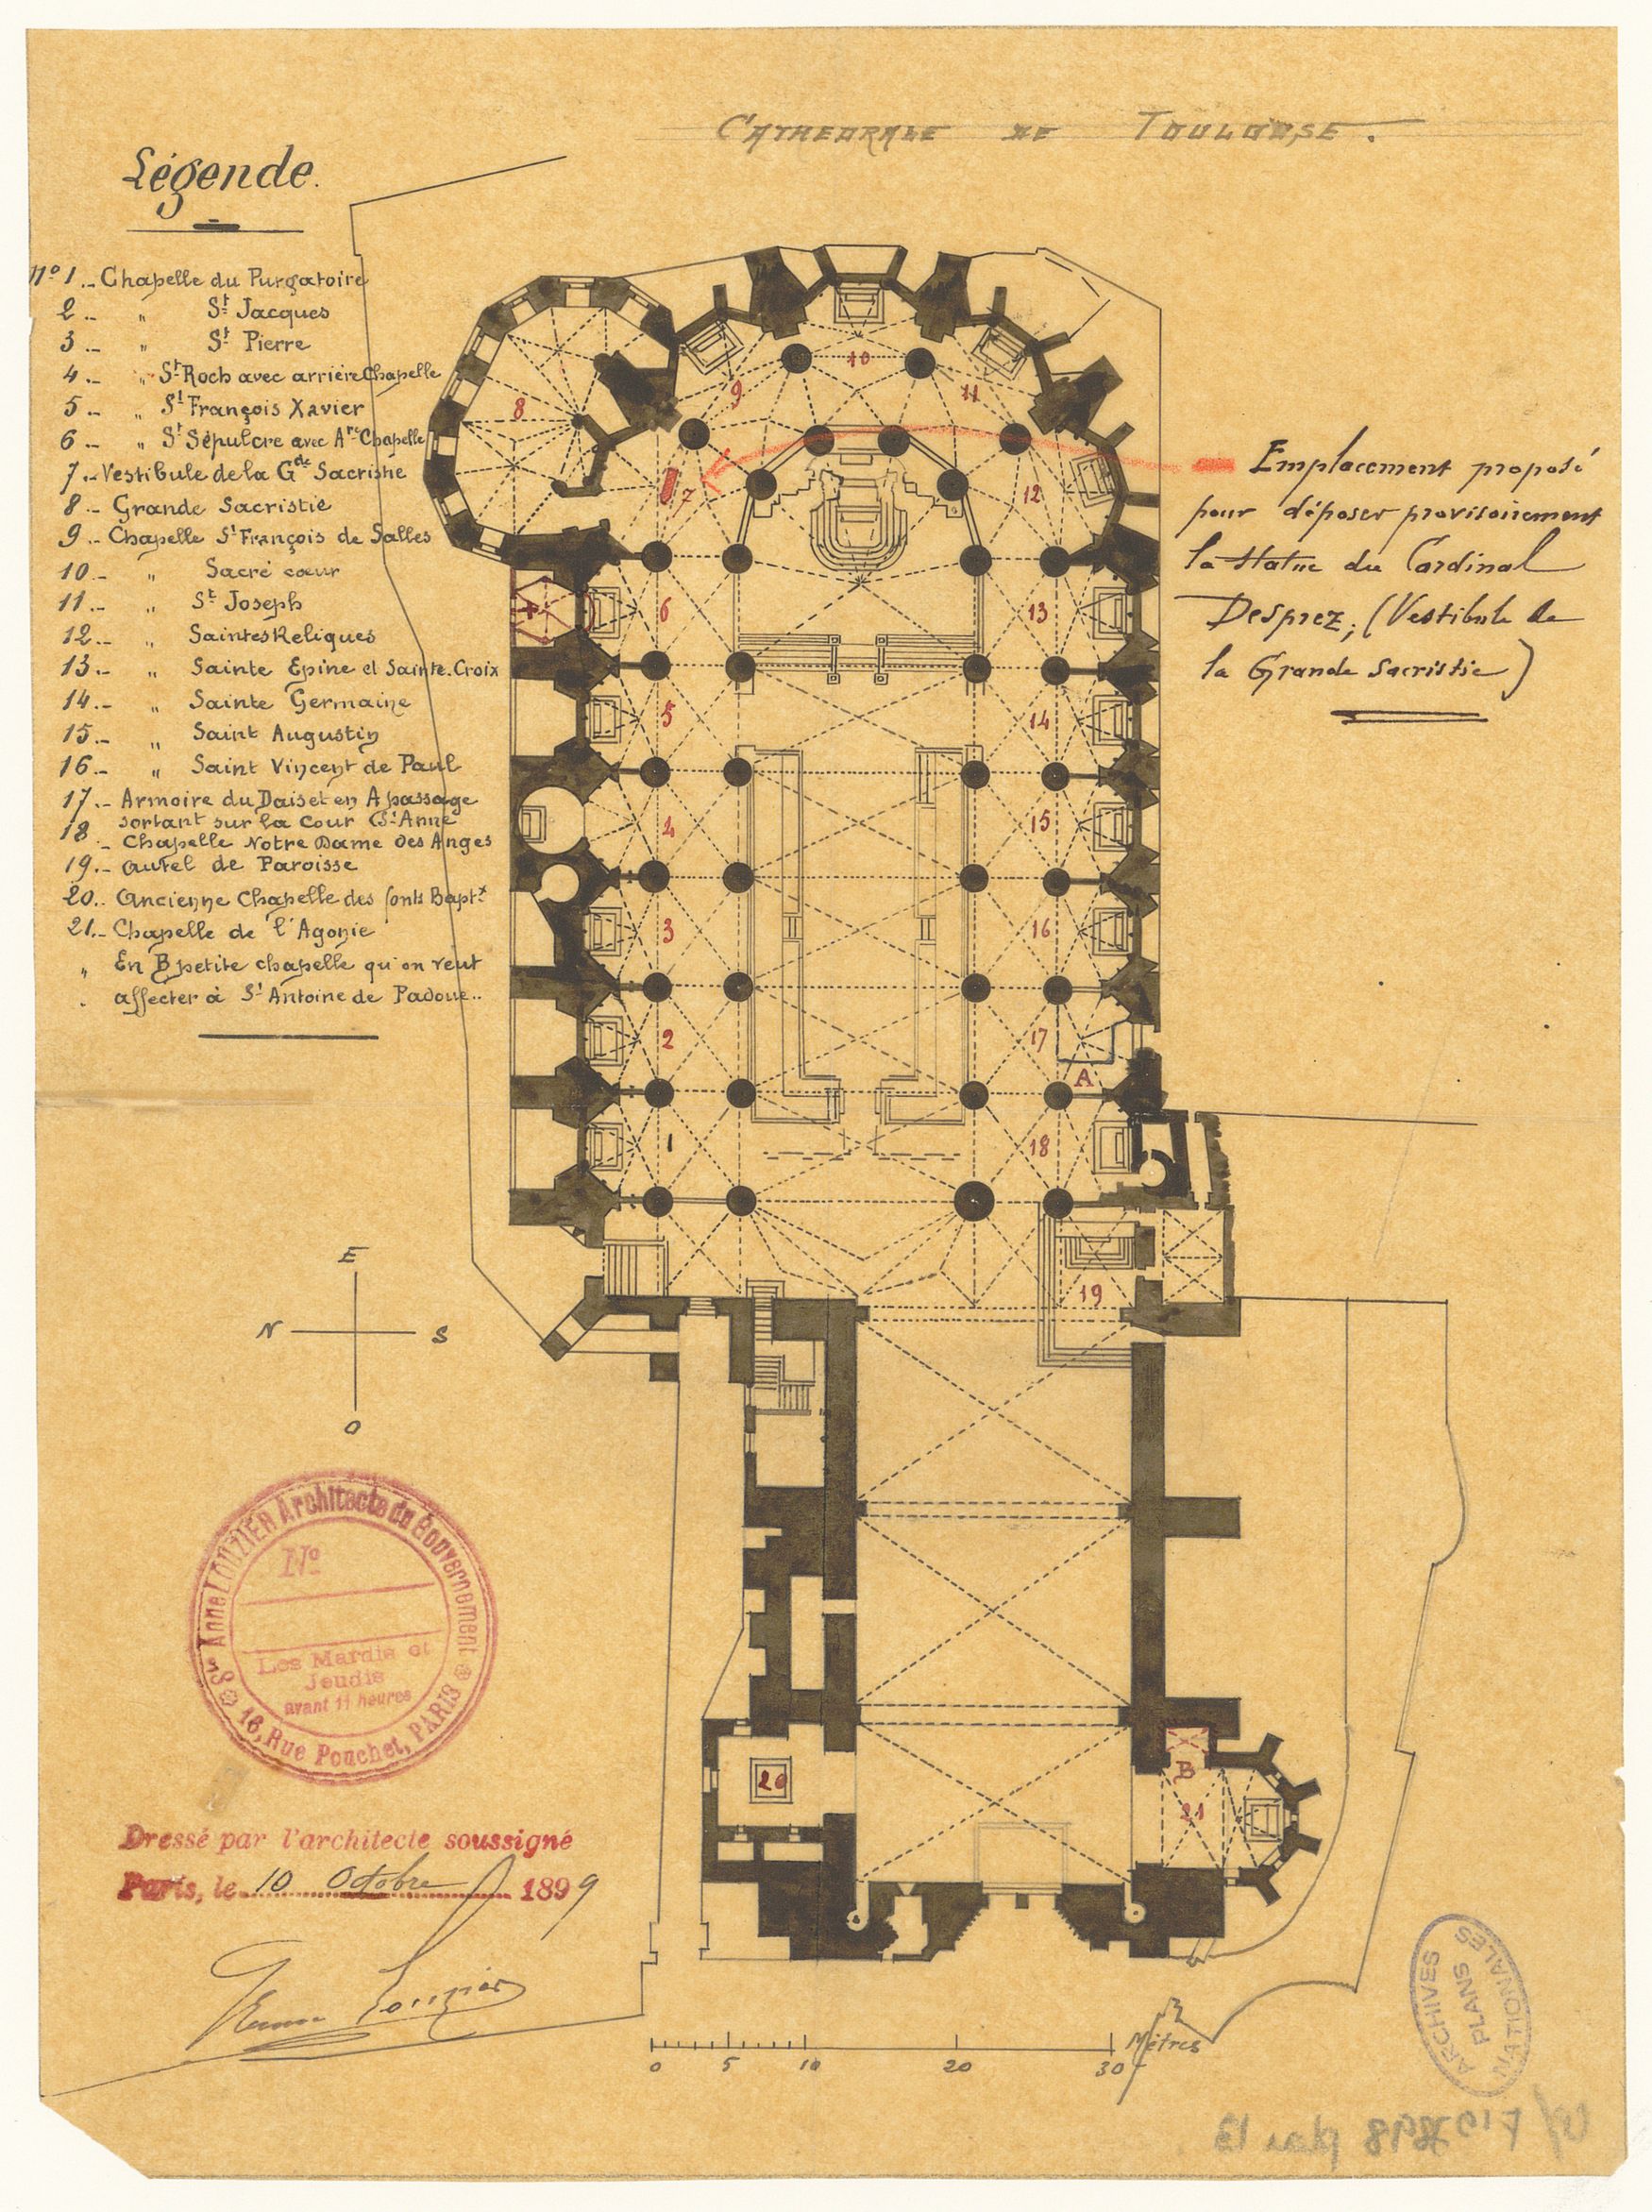 CATHEDRALE DE TOULOUSE.
Légende.
Nº 1.. Chapelle du Purgatoire
2.. " St Jacques
3.. " St Pierre
4.. " St Roch avec arrière Chapelle
5.. " St François Xavier
6.. " St Sépulcre avec Are Chapelle
7.. Vestibule de la Gde Sacristie
8.. Grande Sacristie
9.. Chapelle St François de Salles
10.. " Sacré cœur
11.. " St Joseph
12.. " Saintes Reliques
13.. " Sainte Epine et Sainte.Croix
14.. " Sainte Germaine
15.. " Saint Augustin
16.. " Saint Vincent de Paul
17.. Armoire du Dais et en A passage
sortant sur la cour Ste Anne
18.. Chapelle Notre Dame des Anges
19.. Autel de Paroisse
20.. Ancienne Chapelle des fonts Baptx
21.. Chapelle de l'Agonie
" En B petite chapelle qu'on veut
affecter à St Antoine de Padoue..
Emplacement proposé
pour déposer provisoirement
la statue du Cardinal
Desprez; (Vestibule de
la Grande Sacristie)
8
9
10
11
7
12
6
13
5
14
4
15
3
16
2
17
A
1
18
19
20
B
21
E
N S
O
Ste Anne LOUZIER Architecte du Gouvernement
Nº
Les Mardis et
Jeudis
avant 11 heures
16, Rue Pouchet, PARIS
Dressé par l'architecte soussigné
Paris, le 10 Octobre 1899
0 5 10 20 30 Mètres
ARCHIVES
PLANS
NATIONALES